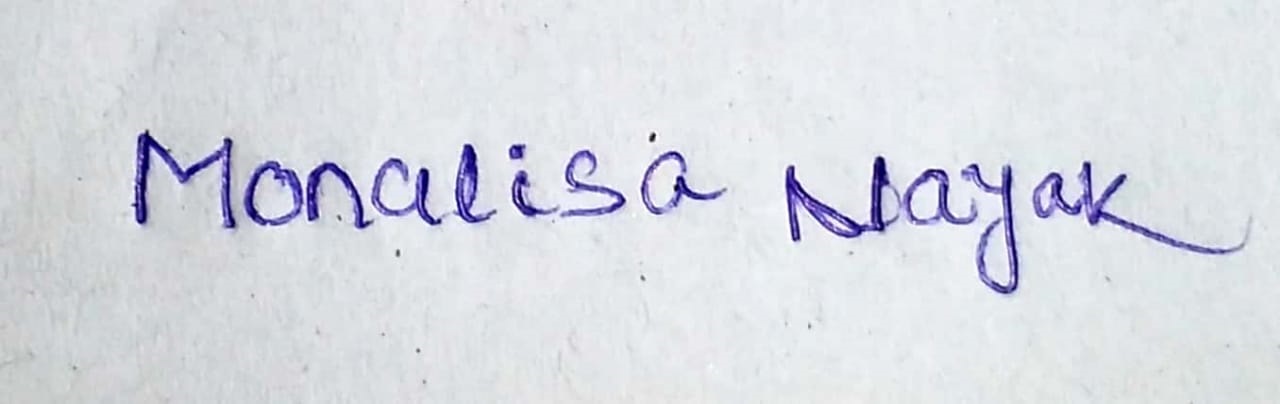 Monalisa Nayak